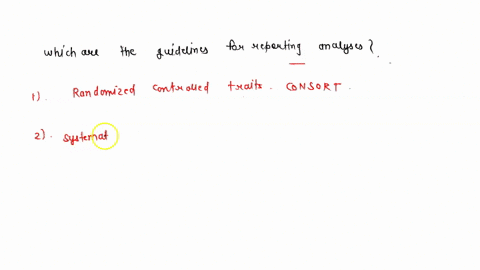 which are the guidelines for reporting analyses?.
1). Randomized controlled traits. CONSORT.
2). systemat